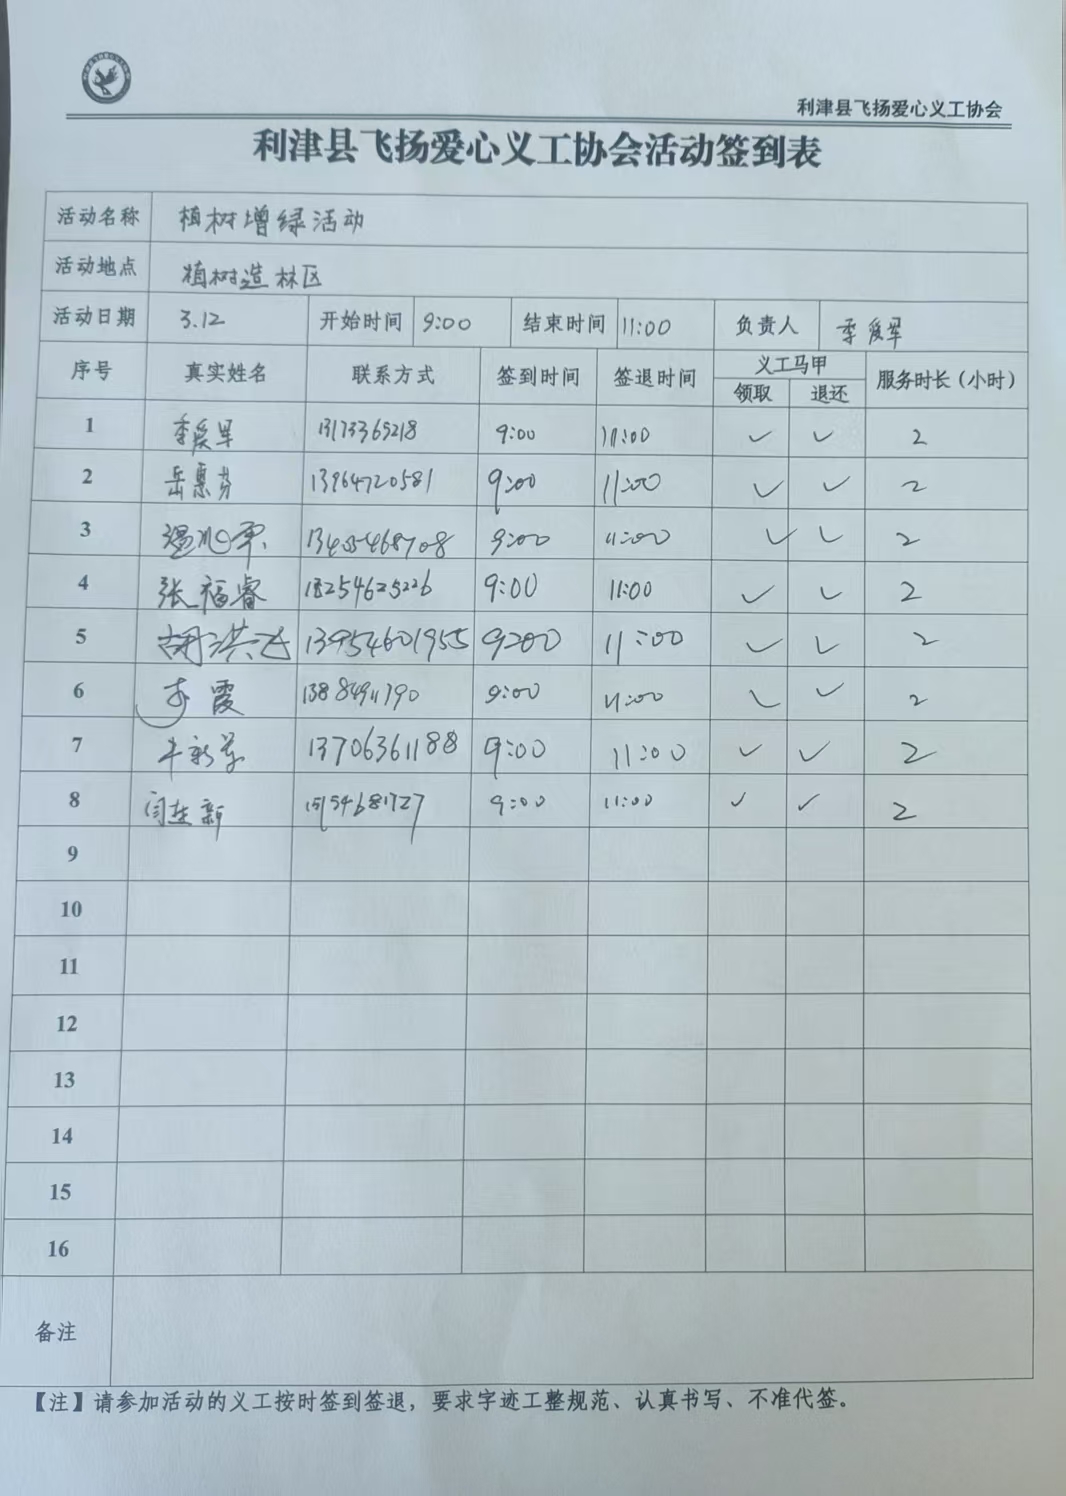 利津县飞扬爱心义工协会
利津县飞扬爱心义工协会活动签到表
活动名称 植树增绿活动
活动地点 植树造林区
活动日期 3.12 开始时间 9:00 结束时间 11:00 负责人 季爱军
序号 真实姓名 联系方式 签到时间 签退时间 义工马甲 领取 退还 服务时长（小时）
1 季爱军 13173365218 9:00 11:00 ✓ ✓ 2
2 岳惠芬 13964720581 9:00 11:00 ✓ ✓ 2
3 13405468708 9:00 11:00 ✓ ✓ 2
4 张福睿 18254625226 9:00 11:00 ✓ ✓ 2
5 胡洪飞 13954601955 9:00 11:00 ✓ ✓ 2
6 李霞 13884911790 9:00 11:00 ✓ ✓ 2
7 牛新 13706361188 9:00 11:00 ✓ ✓ 2
8 闫连新 15154681727 9:00 11:00 ✓ ✓ 2
9
10
11
12
13
14
15
16
备注
【注】请参加活动的义工按时签到签退，要求字迹工整规范、认真书写、不准代签。